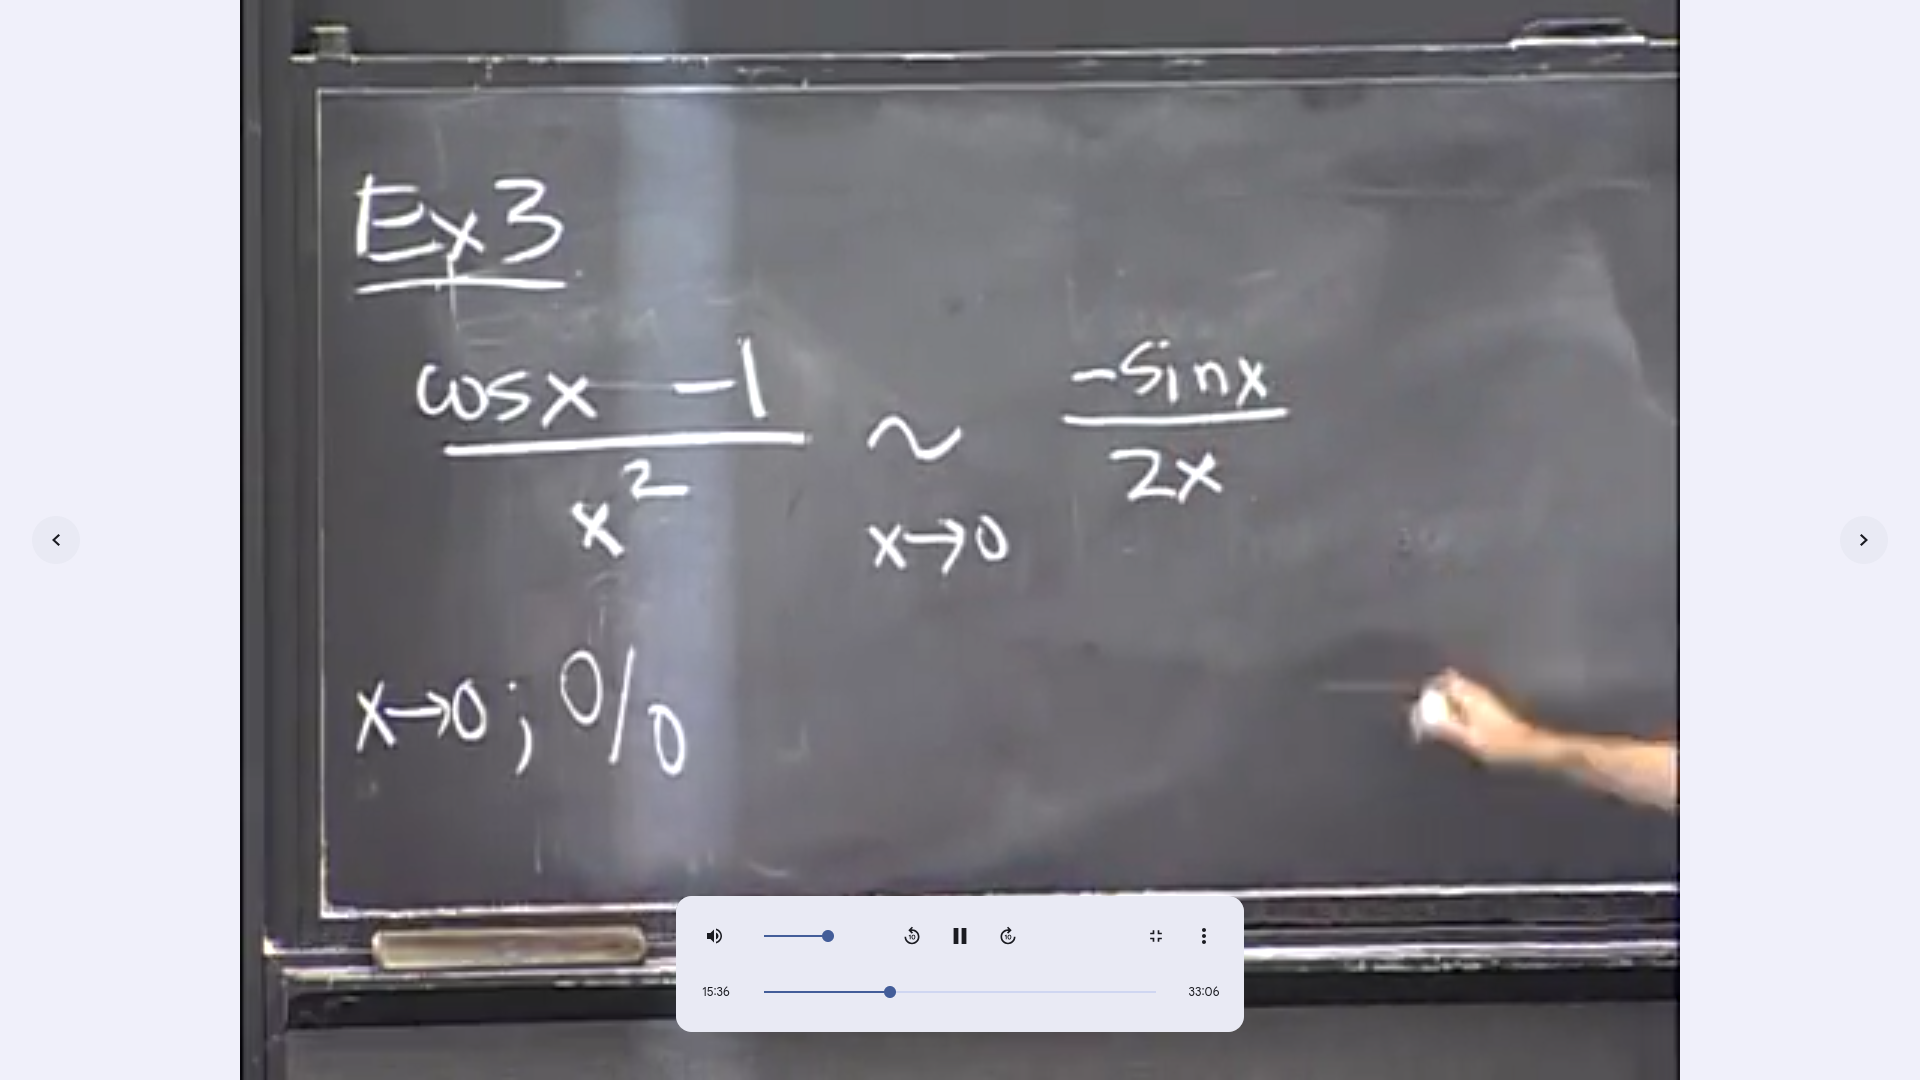 Ex 3
cosx -1 / x² ~ x→0 -sinx / 2x
x→0 ; 0/0
10 10
15:36 33:06